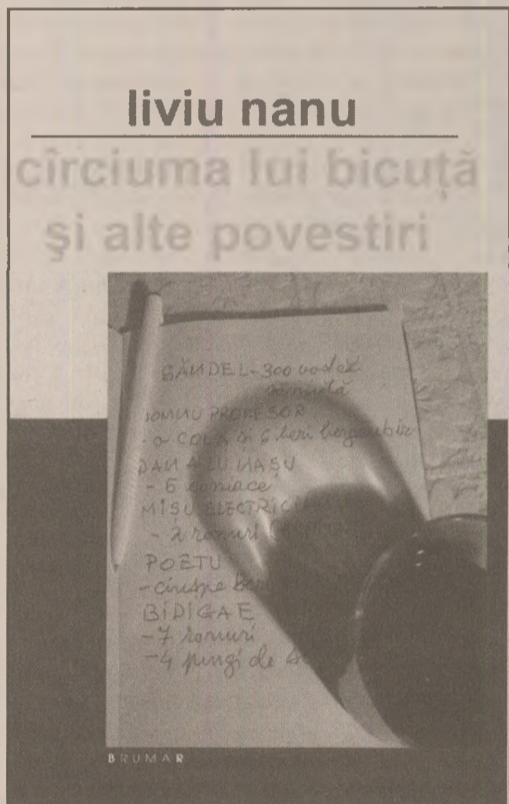 liviu nanu
cîrciuma lui bicuță
şi alte povestiri
SĂNDEL-300 vodcă
DOMNU PROFESOR
- o COLA și 6 beri bergenbir
DAN A LU NAȘU
- 5 coniace
MIȘU ELECTRICI
- 2 romuri
POETU
BIDIGAE
- 7 romuri
- 4 pungi de
BRUMAR